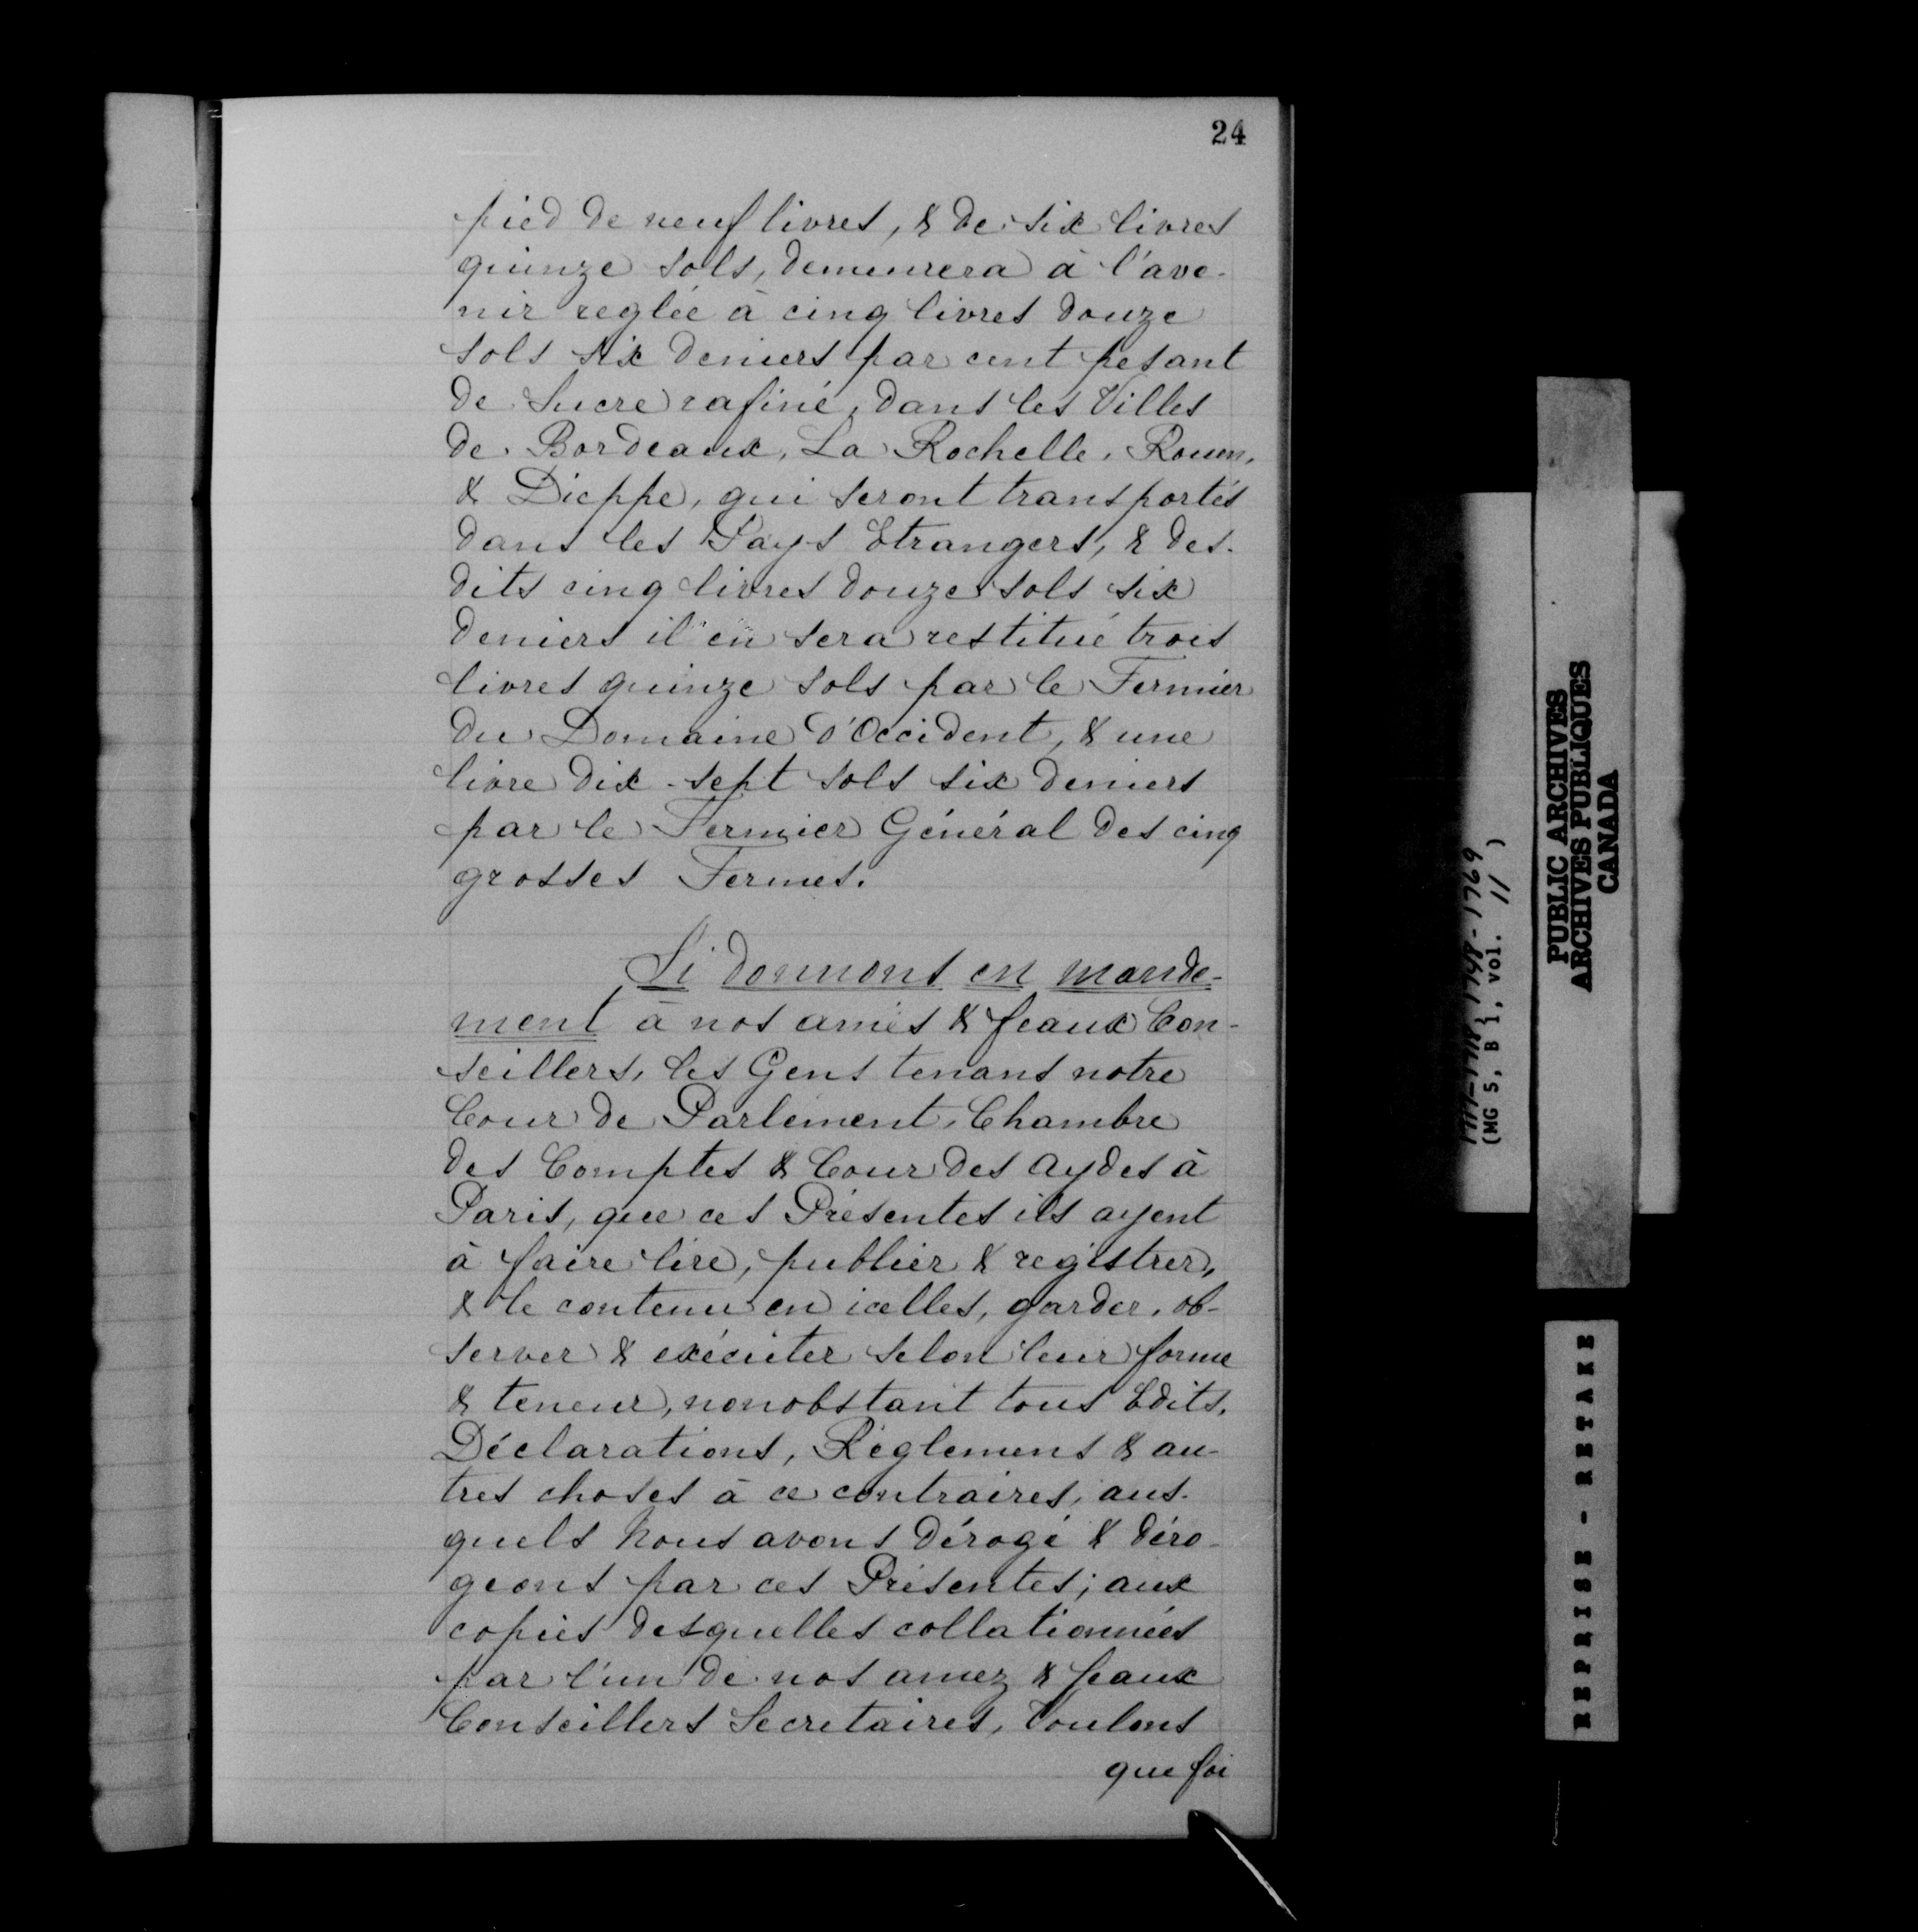 24
pied de neuf livres, & de six livres
quinze sols, demeurera à l'ave-
nir reglée à cinq livres douze
sols six deniers par cent pesant
de Sucre rafiné, dans les Villes
de Bordeaux, La Rochelle, Rouen,
& Dieppe, qui seront transportés
dans les Pays Etrangers, & des-
dits cinq livres douze sols six
deniers il en sera restitué trois
livres quinze sols par le Fermier
du Domaine d'Occident, & une
livre dix-sept sols six deniers
par le Fermier Général des cinq
grosses Fermes.
Si donnons en mande-
ment à nos amés & feaux Con-
seillers, les Gens tenans notre
Cour de Parlement, Chambre
des Comptes & Cour des Aydes à
Paris, que ces Présentes ils ayent
à faire lire, publier & registrer,
& le contenu en icelles, garder, ob-
server & exécuter selon leur forme
& teneur, nonobstant tous Edits,
Déclarations, Règlemens & au-
tres choses à ce contraires, aus-
quels Nous avons dérogé & déro-
geons par ces Présentes; aux
copies desquelles collationnées
par l'un de nos amez & feaux
Conseillers Secretaires, Voulons
que foi
(MG 5, B 1, vol. 11 )
PUBLIC ARCHIVES
ARCHIVES PUBLIQUES
CANADA
REPRISE - RETAKE